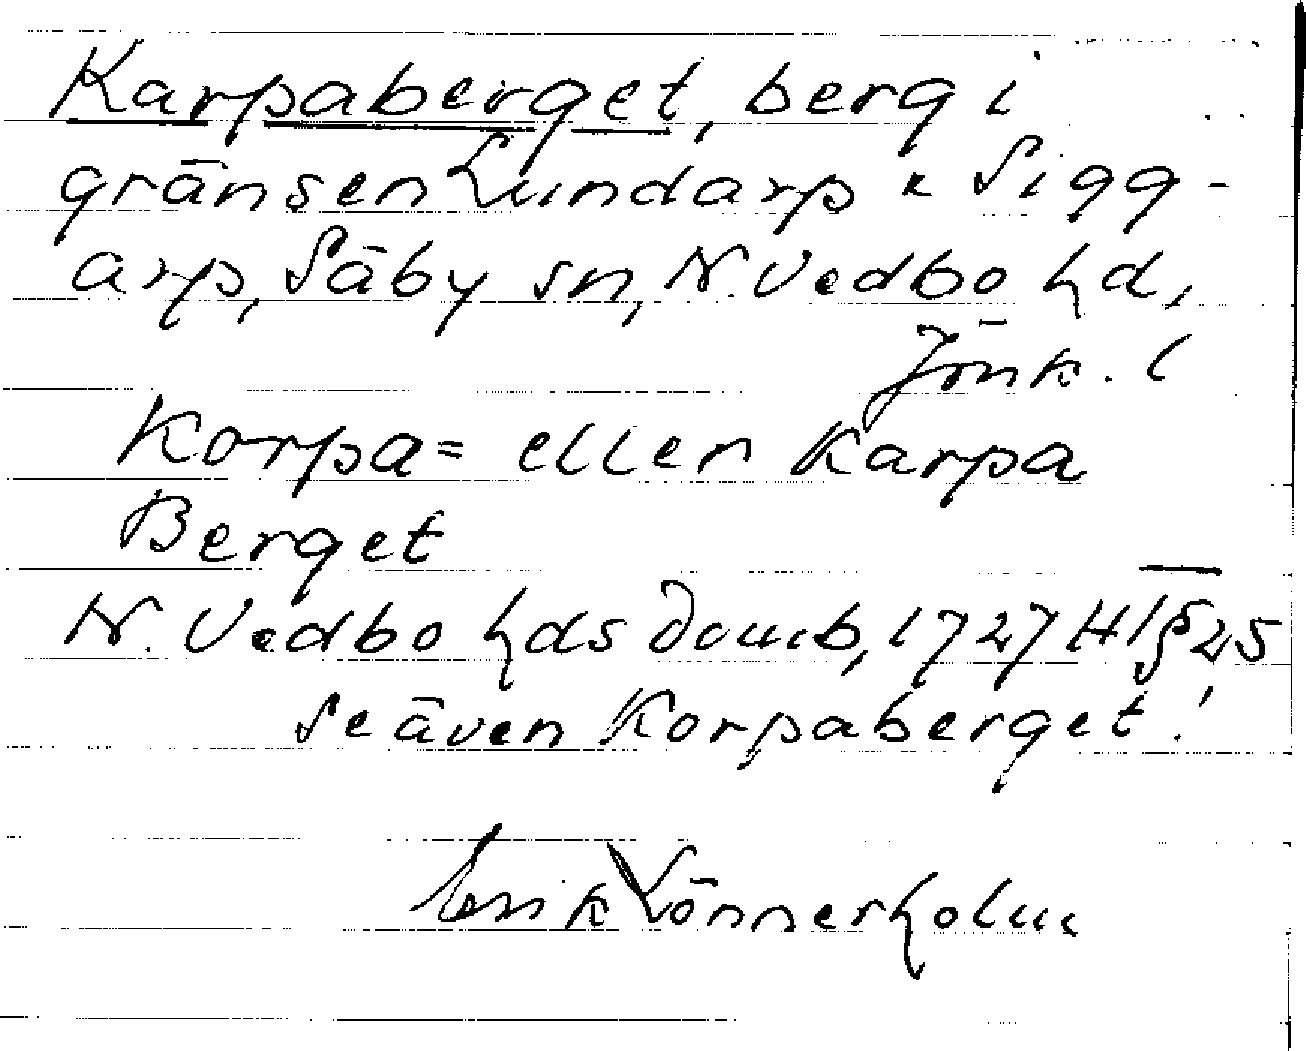 Karpaberget, berg i
gränsen Lundarp x Sigg-
arp, Säby sn, N. Vedbo hd,
Jönk. l
Korpa= eller Karpa
Berget
N. Vedbo hds domb, 1727 HT § 25
Se även Korpaberget!
Erik Lönnerholm